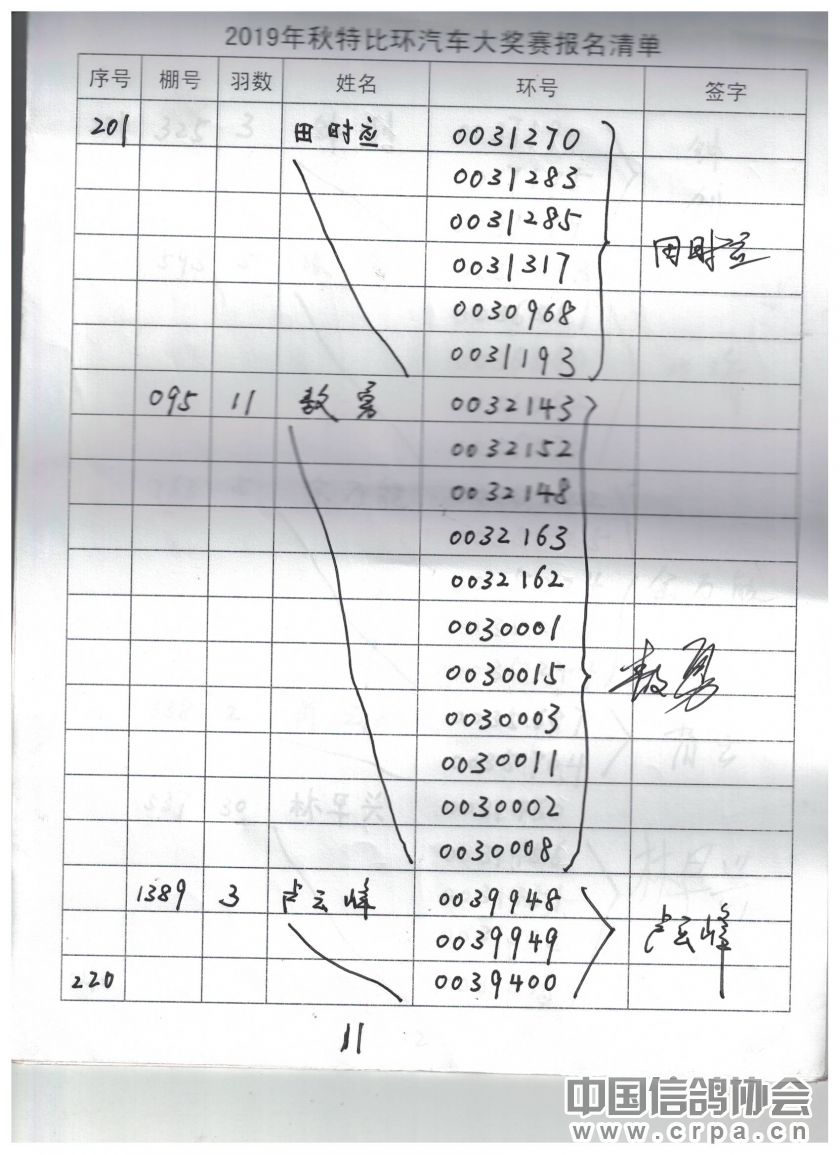 2019年秋特比环汽车大奖赛报名清单
序号 棚号 羽数 姓名 环号 签字
201 田时应 0031270
0031283
0031285
田时应
0031317
0030968
0031193
095 11 敖勇 0032143
0032152
0032148
0032163
0032162
0030001
0030015 敖勇
0030003
0030011
0030002
0030008
1389 3 卢云峰 0039948
0039949 卢云峰
220 0039400
11
中国信鸽协会
www.crpa.cn